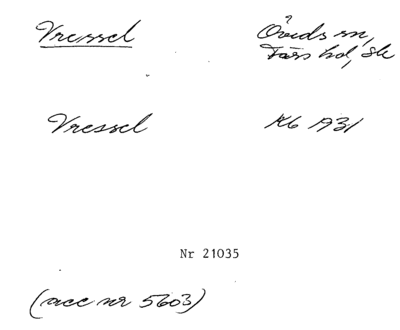 Vressel
Öveds sn,
Färs hd, Sk
Vressel
Kb 1931
Nr 21035
(acc nr 5603)